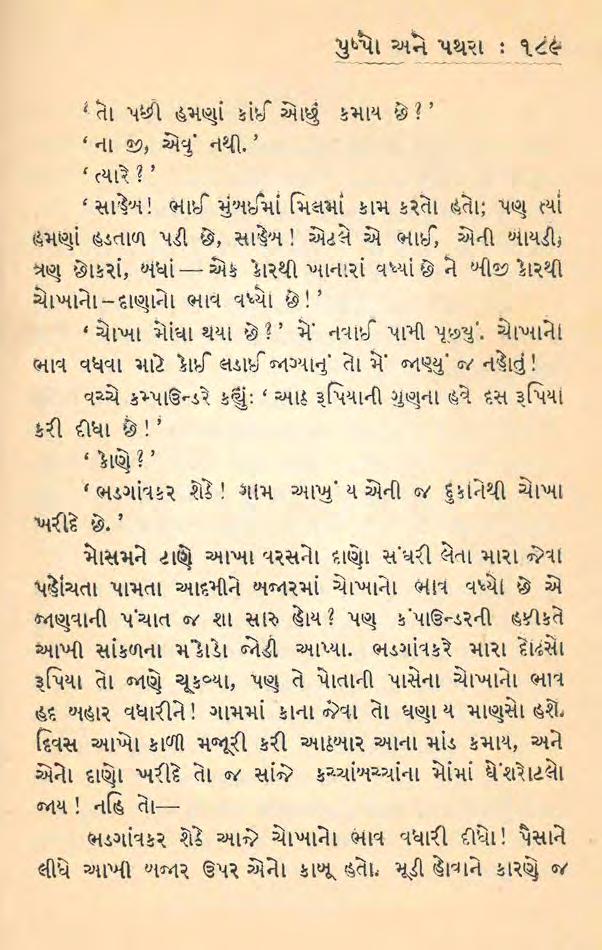 પુષ્પો અને પથરા : ૧૮૯
‘ તો પછી હમણાં કાંઈ ઓછું કમાય છે ? ’
‘ ના જી, એવું નથી. ’
‘ ત્યારે ? ’
‘ સાહેબ ! ભાઈ મુંબઈમાં મિલમાં કામ કરતો હતો; પણ ત્યાં
હમણાં હડતાળ પડી છે, સાહેબ ! એટલે એ ભાઈ, એની બાયડી,
ત્રણ છોકરાં, બધાં — એક કોરથી ખાનારાં વધ્યાં છે ને બીજી કોરથી
ચોખાનો – દાણાનો ભાવ વધ્યો છે ! ’
‘ ચોખા મોંઘા થયા છે ? ’ મેં નવાઈ પામી પૂછ્યું. ચોખાનો
ભાવ વધવા માટે કોઈ લડાઈ જાગ્યાનું તો મેં જાણ્યું જ નહોતું !
વચ્ચે કમ્પાઉન્ડરે કહ્યું: ‘ આઠ રૂપિયાની ગુણના હવે દસ રૂપિયા
કરી દીધા છે ! ’
‘ કોણે ? ’
‘ ભડગાંવકર શેઠે ! ગામ આખું ય એની જ દુકાનેથી ચોખા
ખરીદે છે. ’
મોસમને ટાણે આખા વરસનો દાણો સંઘરી લેતા મારા જેવા
પહોંચતા પામતા આદમીને બજારમાં ચોખાનો ભાવ વધ્યો છે એ
જાણવાની પંચાત જ શા સારુ હોય ? પણ કંપાઉન્ડરની હકીકતે
આખી સાંકળના મંકોડા જોડી આપ્યા. ભડગાંવકરે મારા દોઢસો
રૂપિયા તો જાણે ચૂકવ્યા, પણ તે પોતાની પાસેના ચોખાનો ભાવ
હદ બહાર વધારીને ! ગામમાં કાના જેવા તો ઘણા ય માણસો હશે.
દિવસ આખો કાળી મજૂરી કરી આઠબાર આના માંડ કમાય, અને
એનો દાણો ખરીદે તો જ સાંજે કચ્ચાંબચ્ચાંના મોંમાં ઘેંશરોટલો
જાય ! નહિ તો—
ભડગાંવકર શેઠે આજે ચોખાનો ભાવ વધારી દીધો ! પૈસાને
લીધે આખી બજાર ઉપર એનો કાબૂ હતો. મૂડી હોવાને કારણે જ